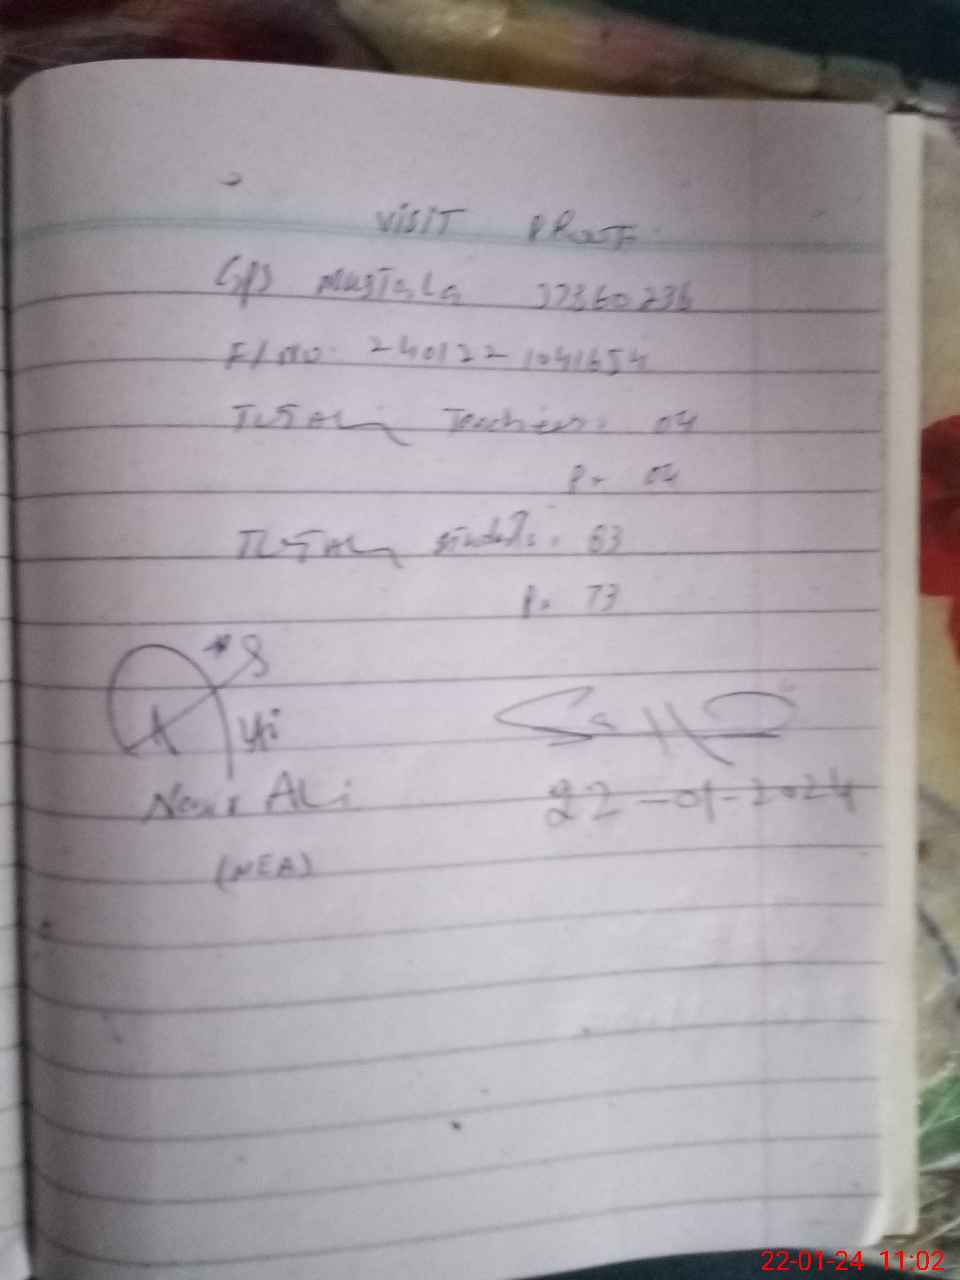 VISIT PROOF
GPS Mustala 37360236
F/No: 240122 1041654
TOTAL Teachers: 04
P= 04
TOTAL students: 83
P= 73
22-01-2024
Ali
(MEA)
22-01-24 11:02